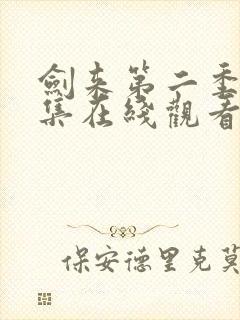 劍来第二季
集在綫觀看
保安德里克莫